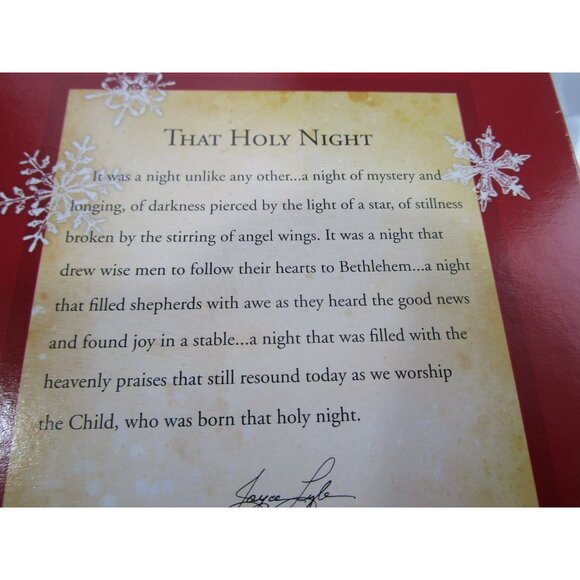 THAT HOLY NIGHT
It was a night unlike any other...a night of mystery and
longing, of darkness pierced by the light of a star, of stillness
broken by the stirring of angel wings. It was a night that
drew wise men to follow their hearts to Bethlehem...a night
that filled shepherds with awe as they heard the good news
and found joy in a stable...a night that was filled with the
heavenly praises that still resound today as we worship
the Child, who was born that holy night.
Joyce Lyle